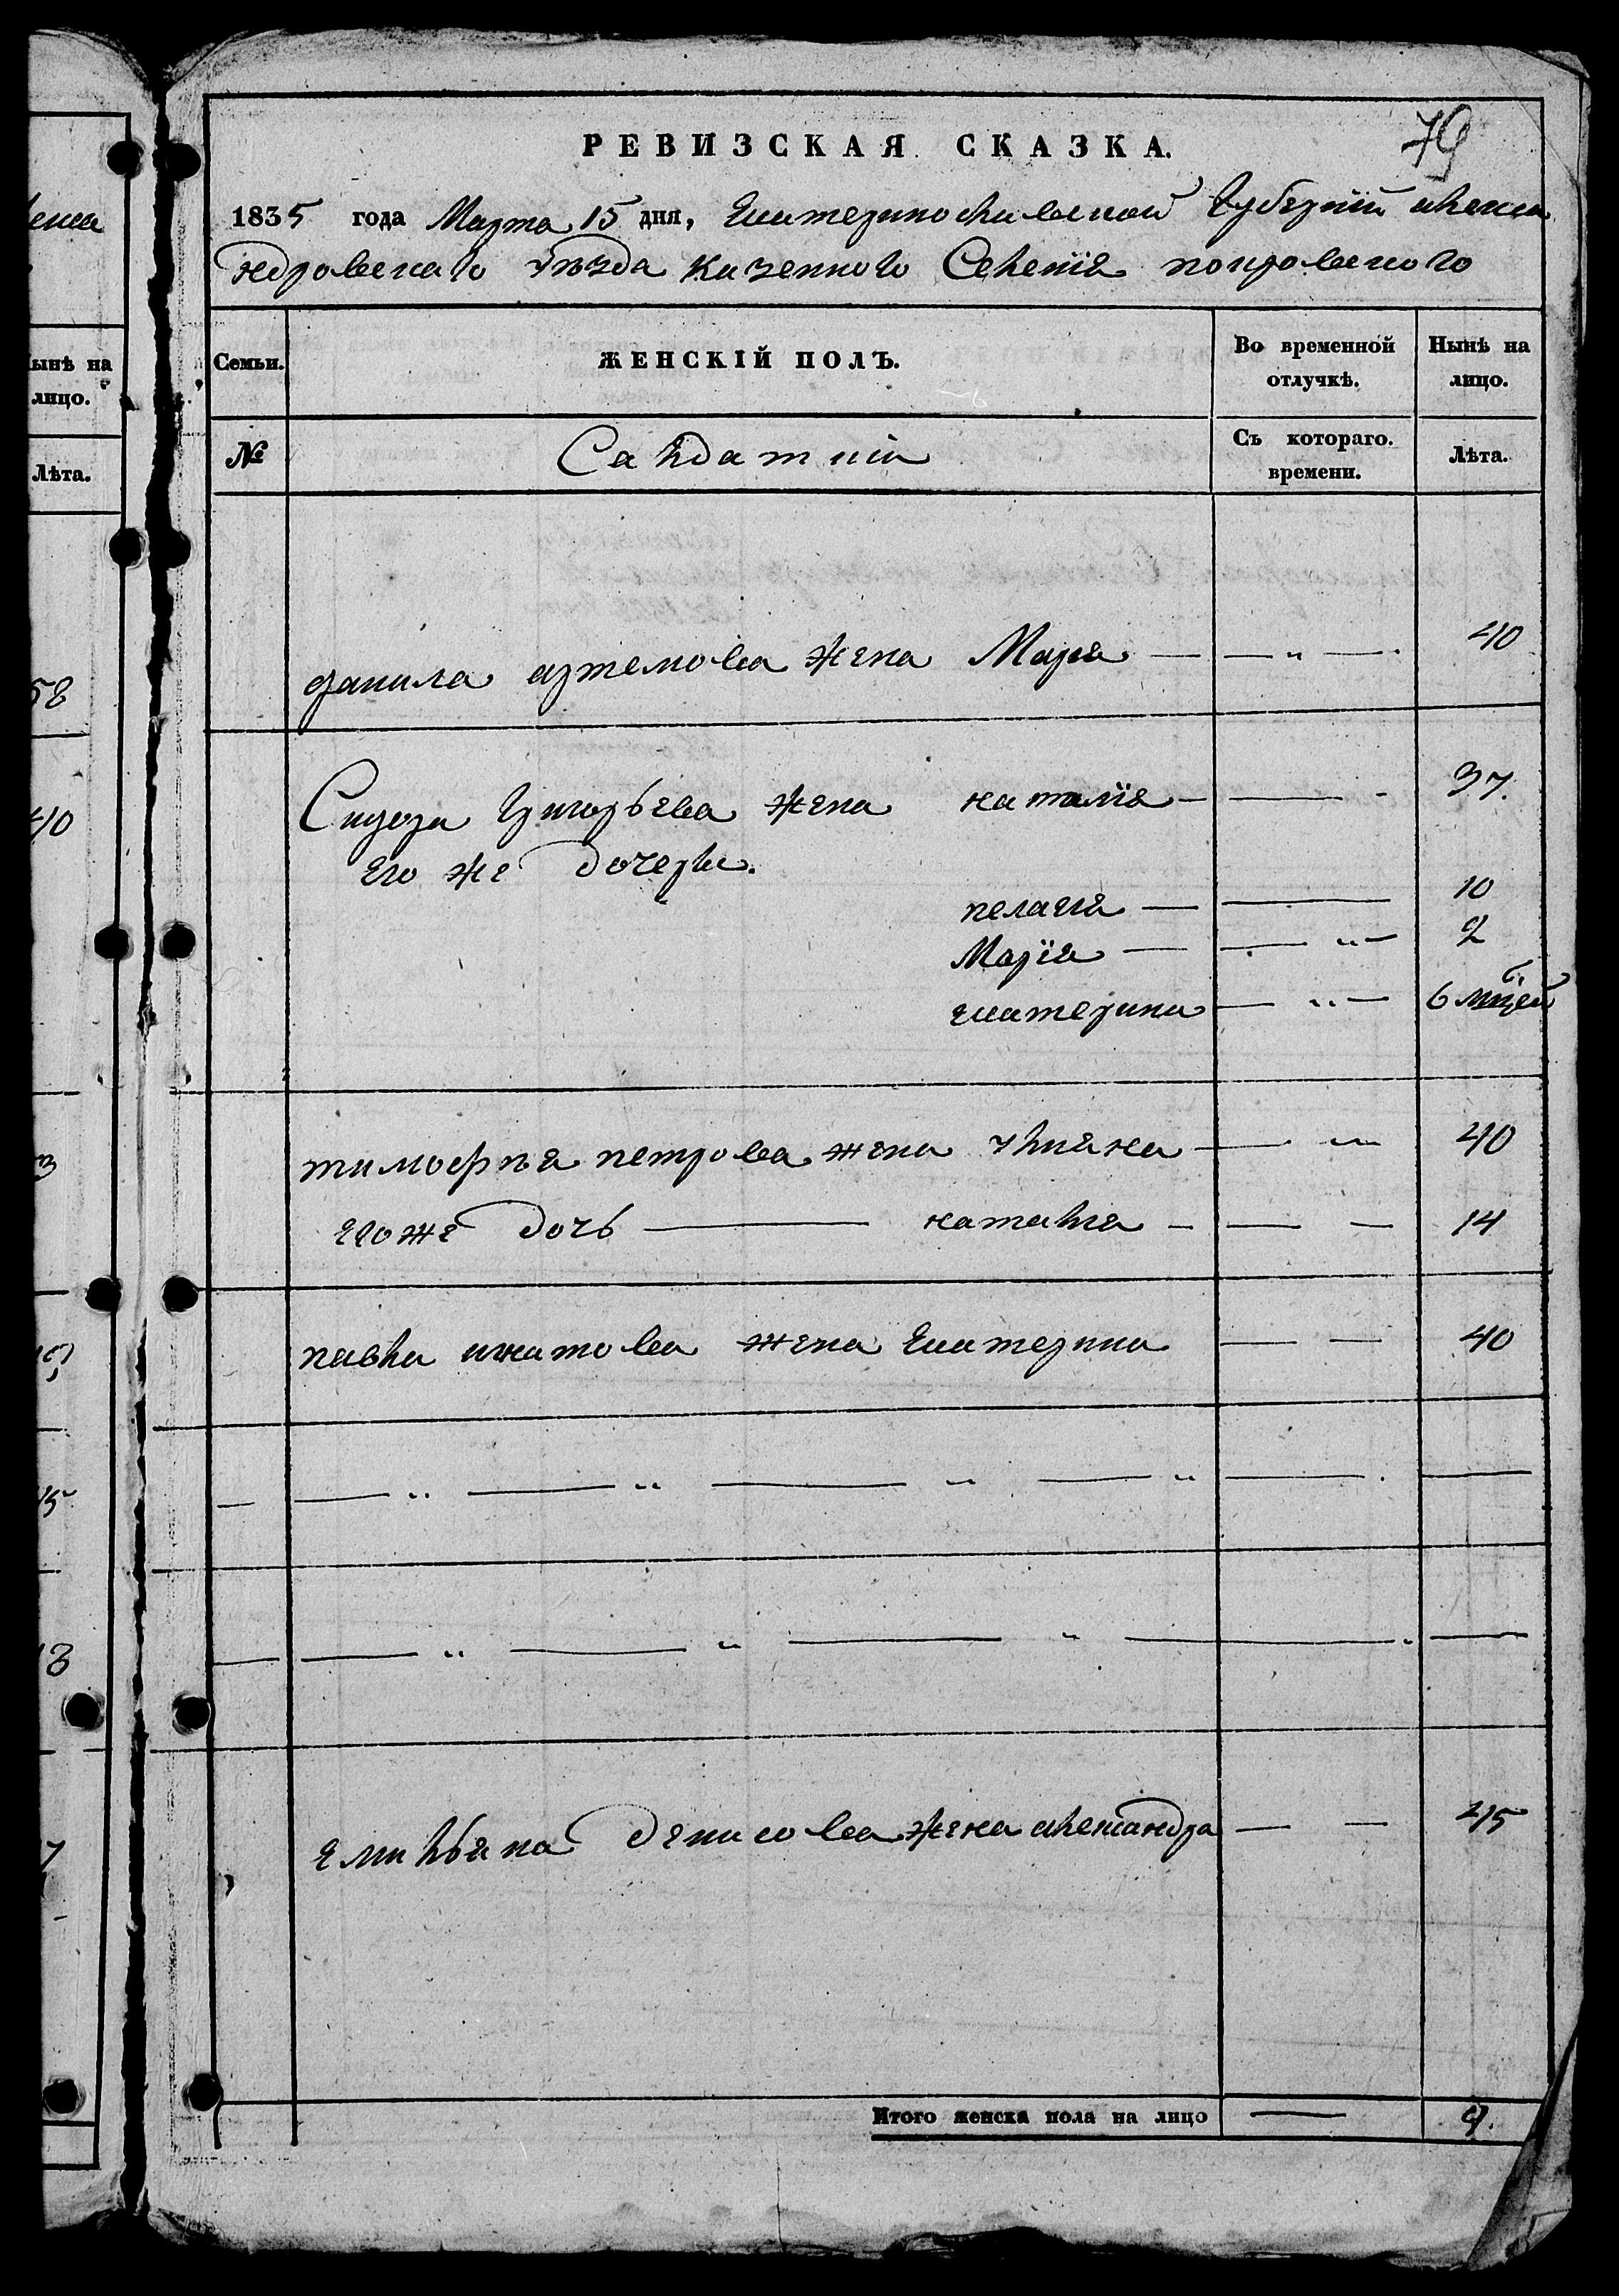 енка
ынѣ на
лицо.
Лѣта.
58
40
3
15
18
7
79
РЕВИЗСКАЯ СКАЗКА.
1835 года Марта 15 дня, Екатеринославской Губерніи алекса
ндровскаго уѣзда казенного Селенія покровского
Семьи. ЖЕНСКІЙ ПОЛЪ. Во временной отлучкѣ. Нынѣ на лицо.
№ Салдатки Съ котораго. времени. Лѣта.
данила артемова жена Марія — — „ — 40
Сидора Григорьева жена наталія — — - 37.
Его же дочери.
пелагія — — 10
Марія — — „ — 2
екатерина — „ — 6 мцей
тимофѣя петрова жена ульяна — — „ — 40
его же дочь — наталія — — — 14
павла игнатова жена Екатерина — — 40
— — „ — „ — „ — „ — —
— — „ — „ — „ — —
емильяна денисова жена александра — — 45
Итого женска пола на лицо — 9.